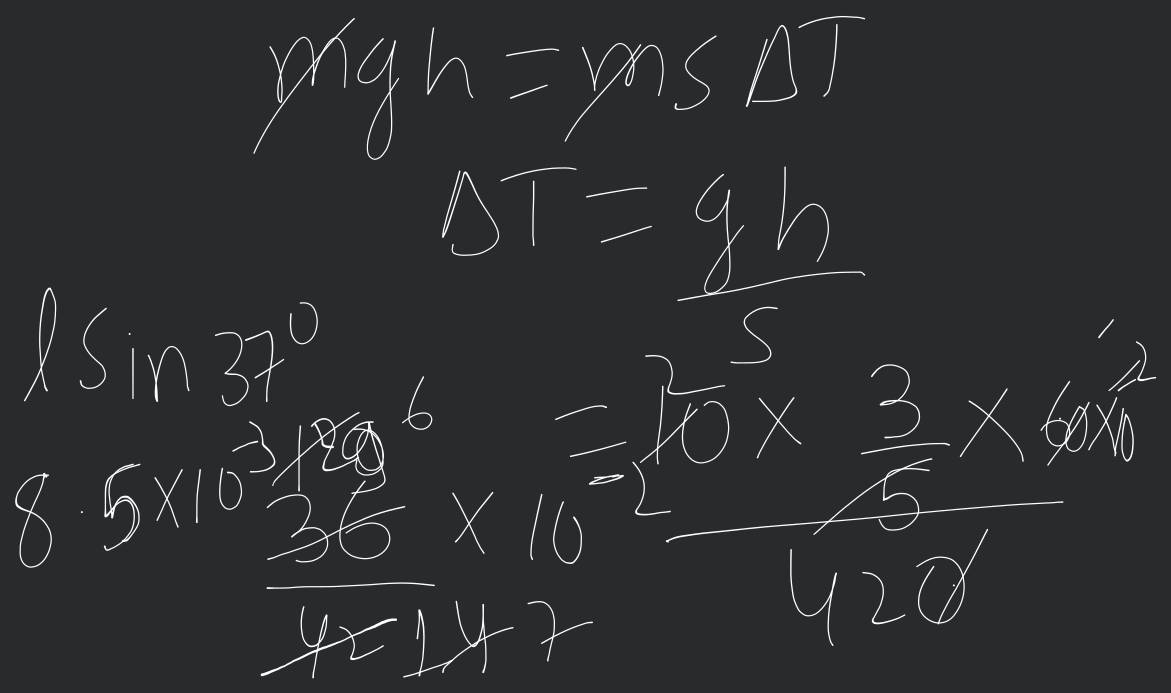 mgh = msΔT
ΔT = gh
s
l sin 37⁰
= 10 × 3/5 × 60 × 10⁻²
420
8.5 × 10⁻³
36 × 10⁻²
42 14 7